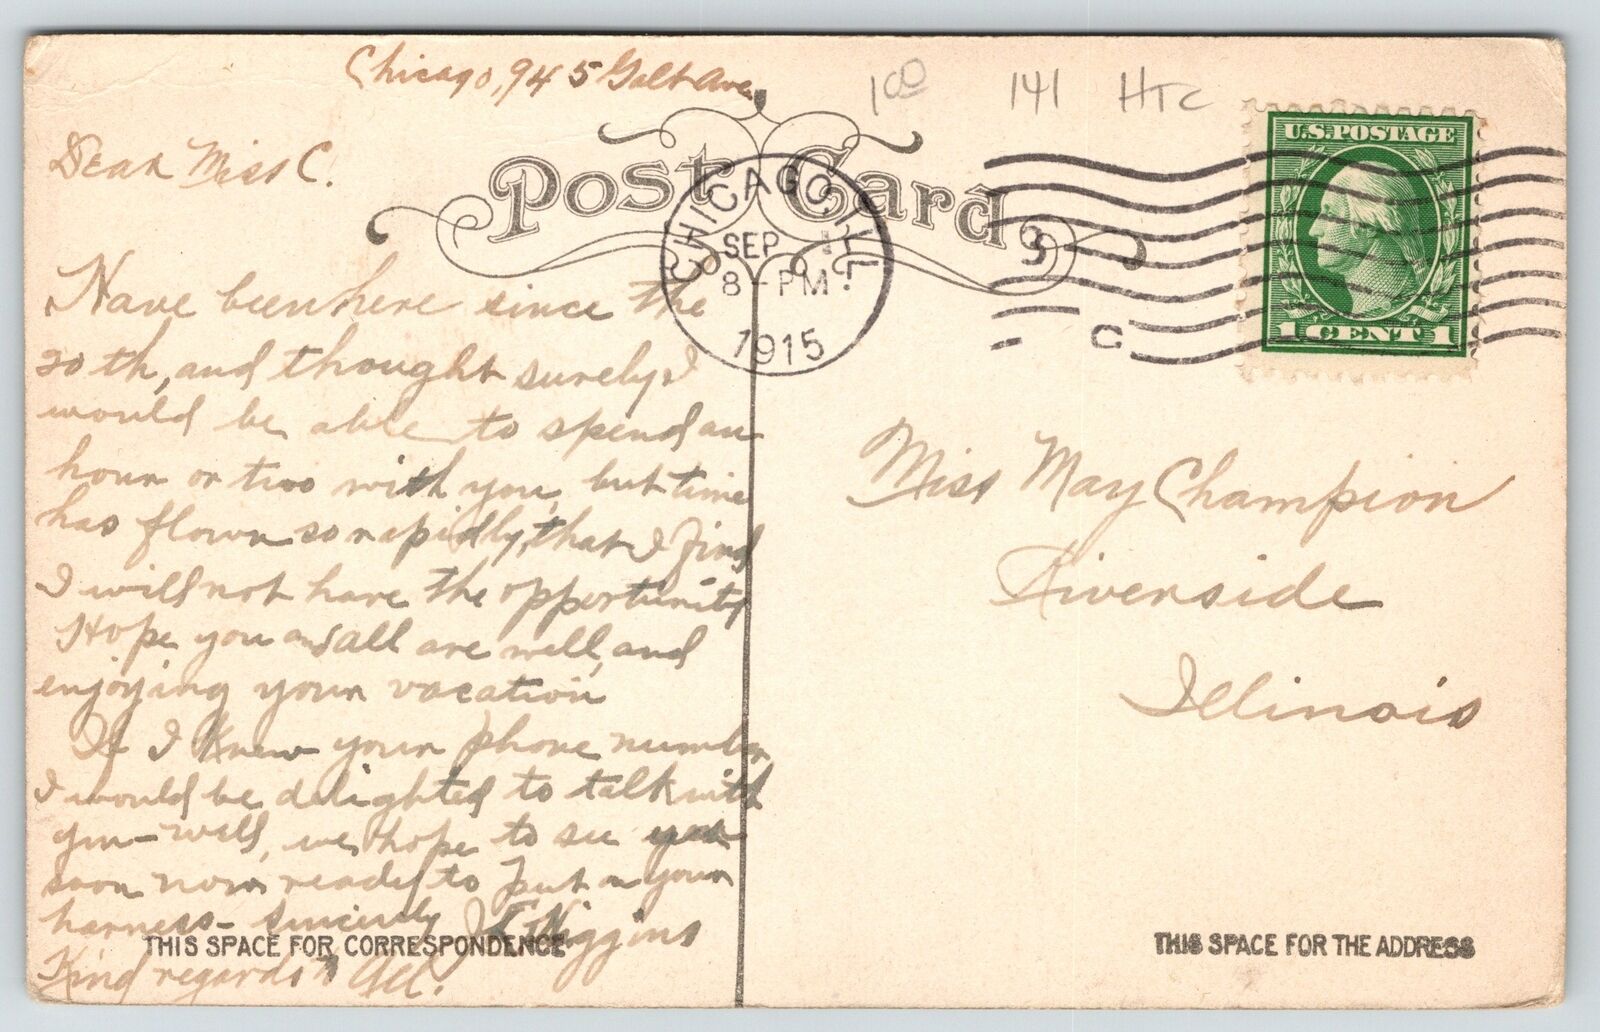 Chicago, 945 Galt Ave
100 141 HTC
Post Card
U.S. POSTAGE
1 CENT 1
CHICAGO, ILL.
SEP 1
8-PM
1915
C
Dear Miss C.
Have been here since the
20th, and thought surely I
would be able to spend an
hour or two with you, but time
has flown so rapidly, that I find
I will not have the opportunity
Hope you and all are well, and
enjoying your vacation
If I knew your phone number
I would be delighted to talk with
you - well, we hope to see you
soon now ready to put on your
harness - Sincerely J E Higgins
Kind regards to all.
THIS SPACE FOR CORRESPONDENCE
Miss May Champion
Riverside
Illinois
THIS SPACE FOR THE ADDRESS